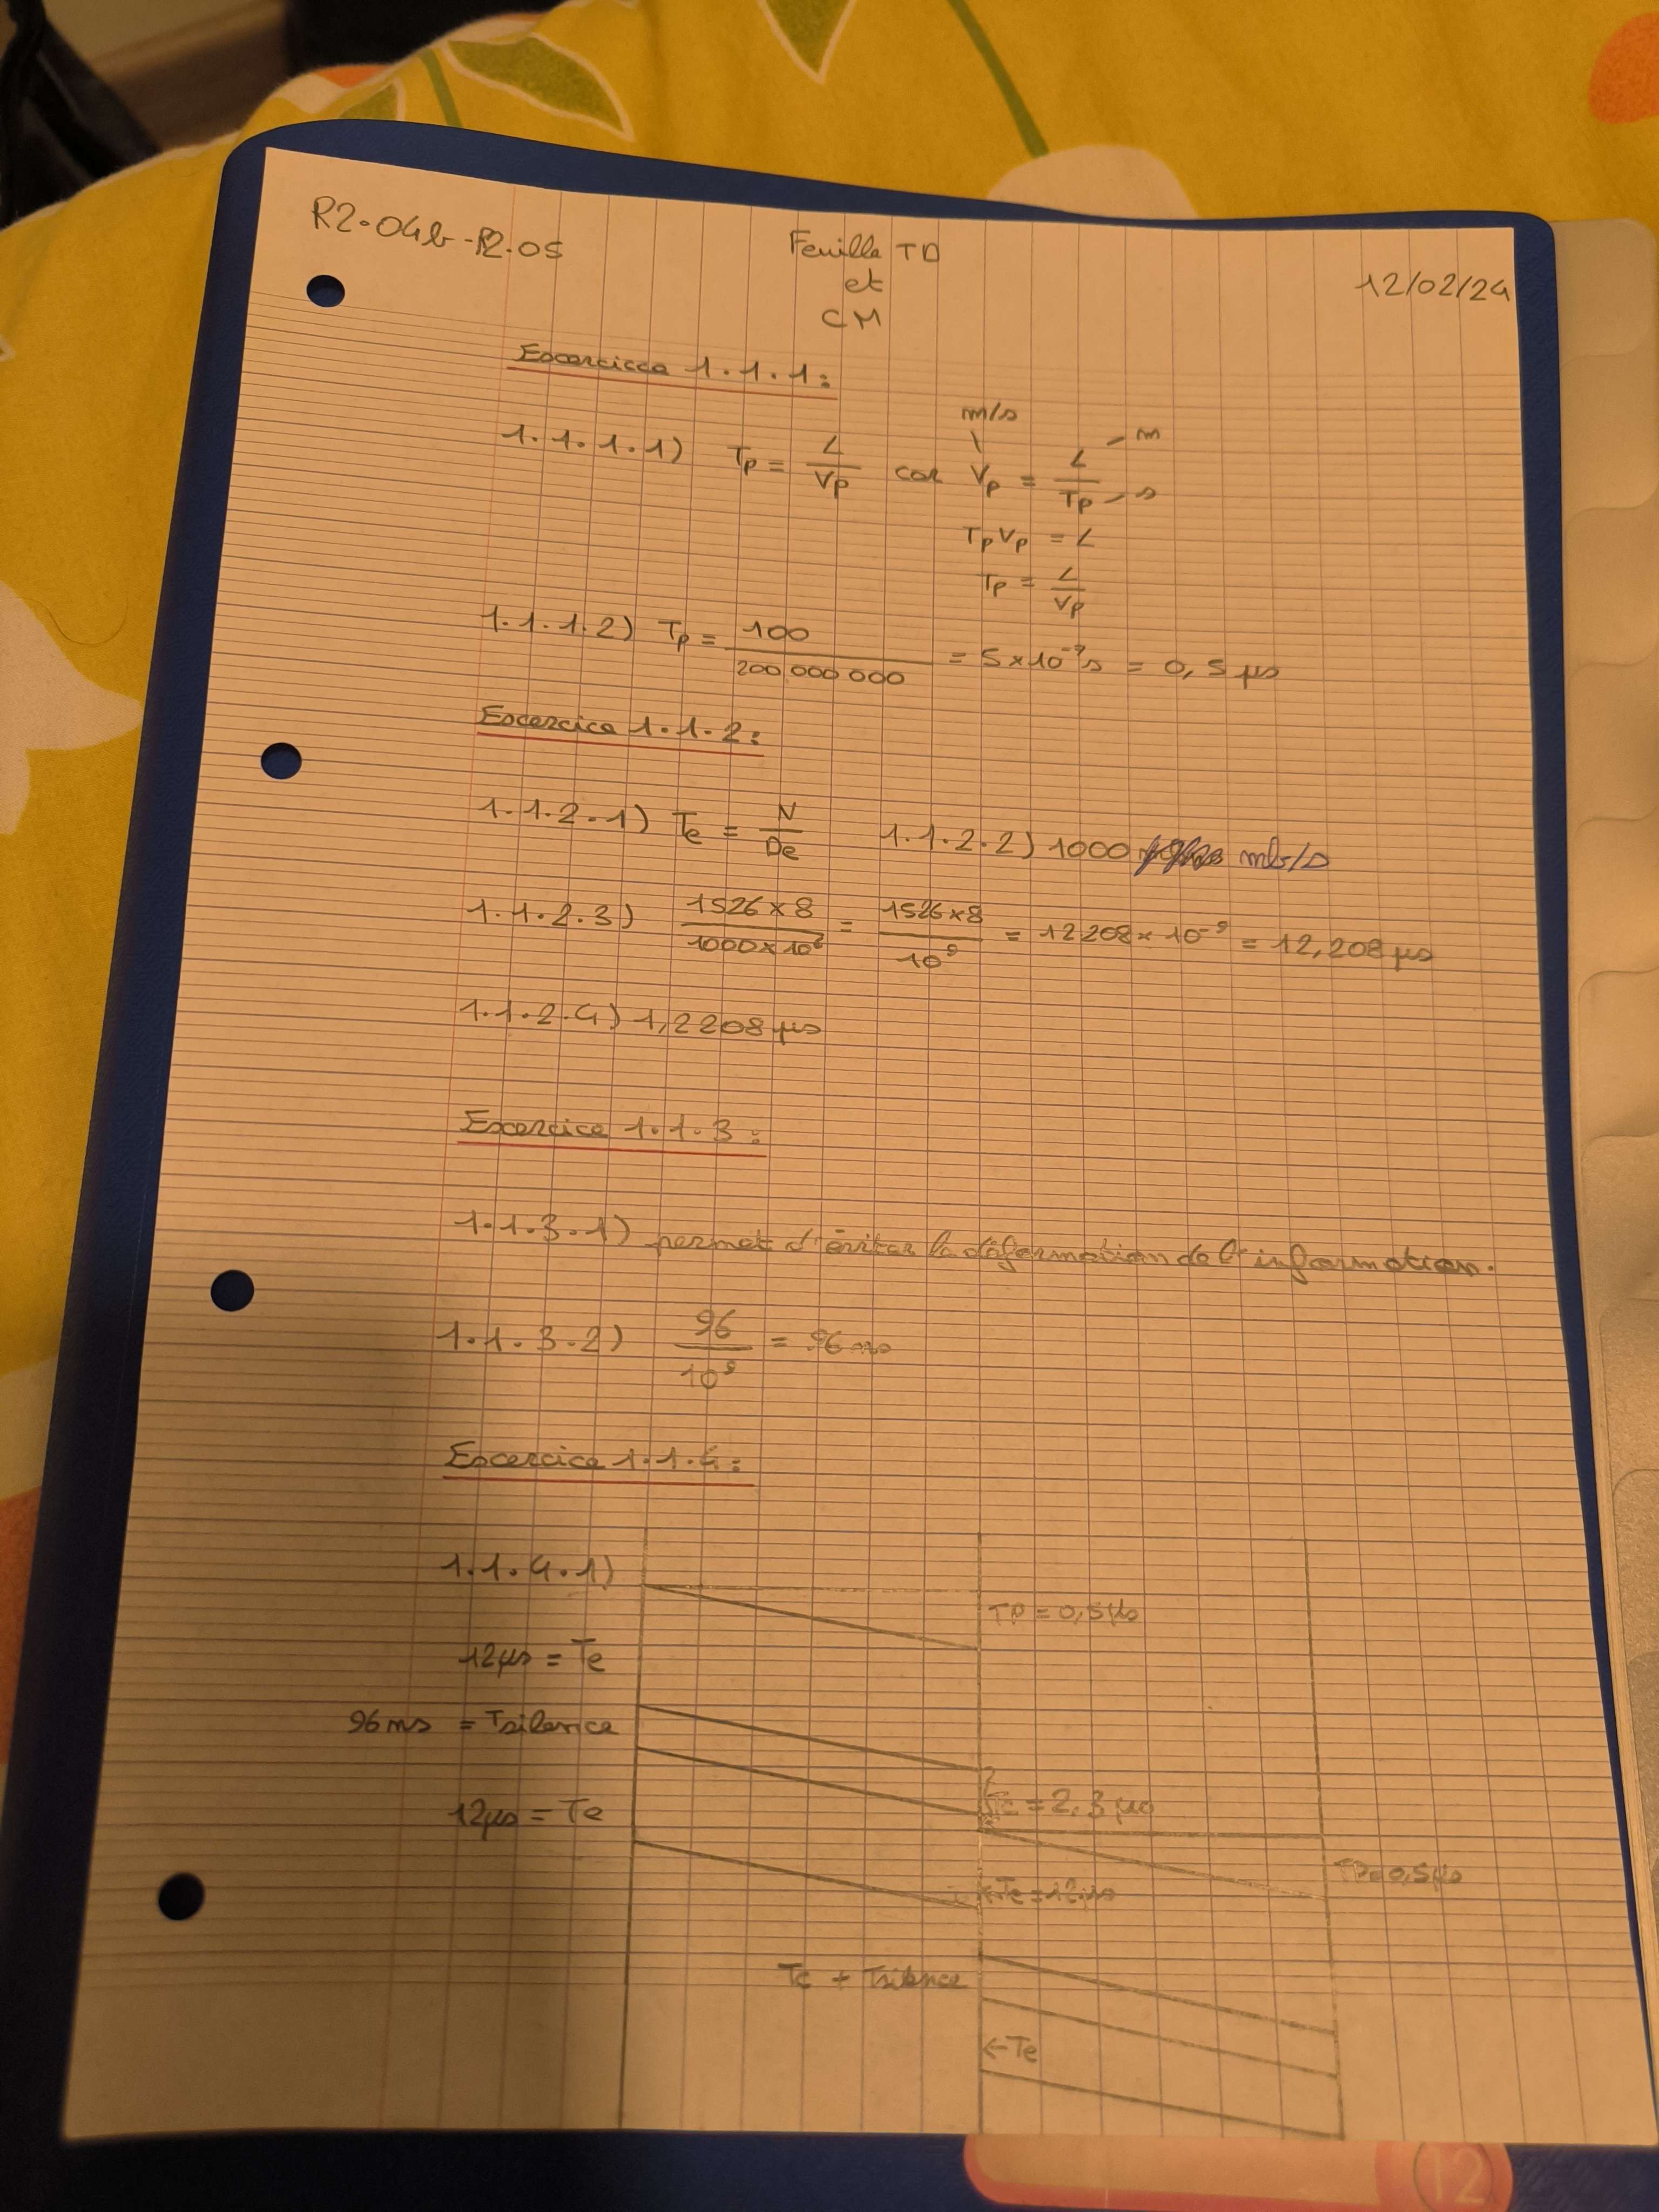 R2.04b-R2.05
Feuille TD
et
CM
12/02/24
Excercicce 1.1.1:
1.1.1.1) Tp = L/Vp car Vp = L/Tp
m/s
m
s
TpVp = L
Tp = L/Vp
1.1.1.2) Tp = 100/200 000 000 = 5×10⁻⁷s = 0,5 µs
Excercice 1.1.2:
1.1.2.1) Te = N/De 1.1.2.2) 1000 mb/s
1.1.2.3) 1526×8/1000×10⁶ = 1526×8/10⁹ = 12208×10⁻⁹ = 12,208 µs
1.1.2.4) 1,2208 µs
Excercice 1.1.3:
1.1.3.1) permet d'éviter la déformation de l'information.
1.1.3.2) 96/10⁹ = 96 ns
Excercice 1.1.4:
1.1.4.1)
TP = 0,5µs
12µs = Te
96ns = Tsilence
= 2,3 µs
12µs = Te
TP=0,5µs
←Te = 12µs
Tc + Tsilence
←Te
12